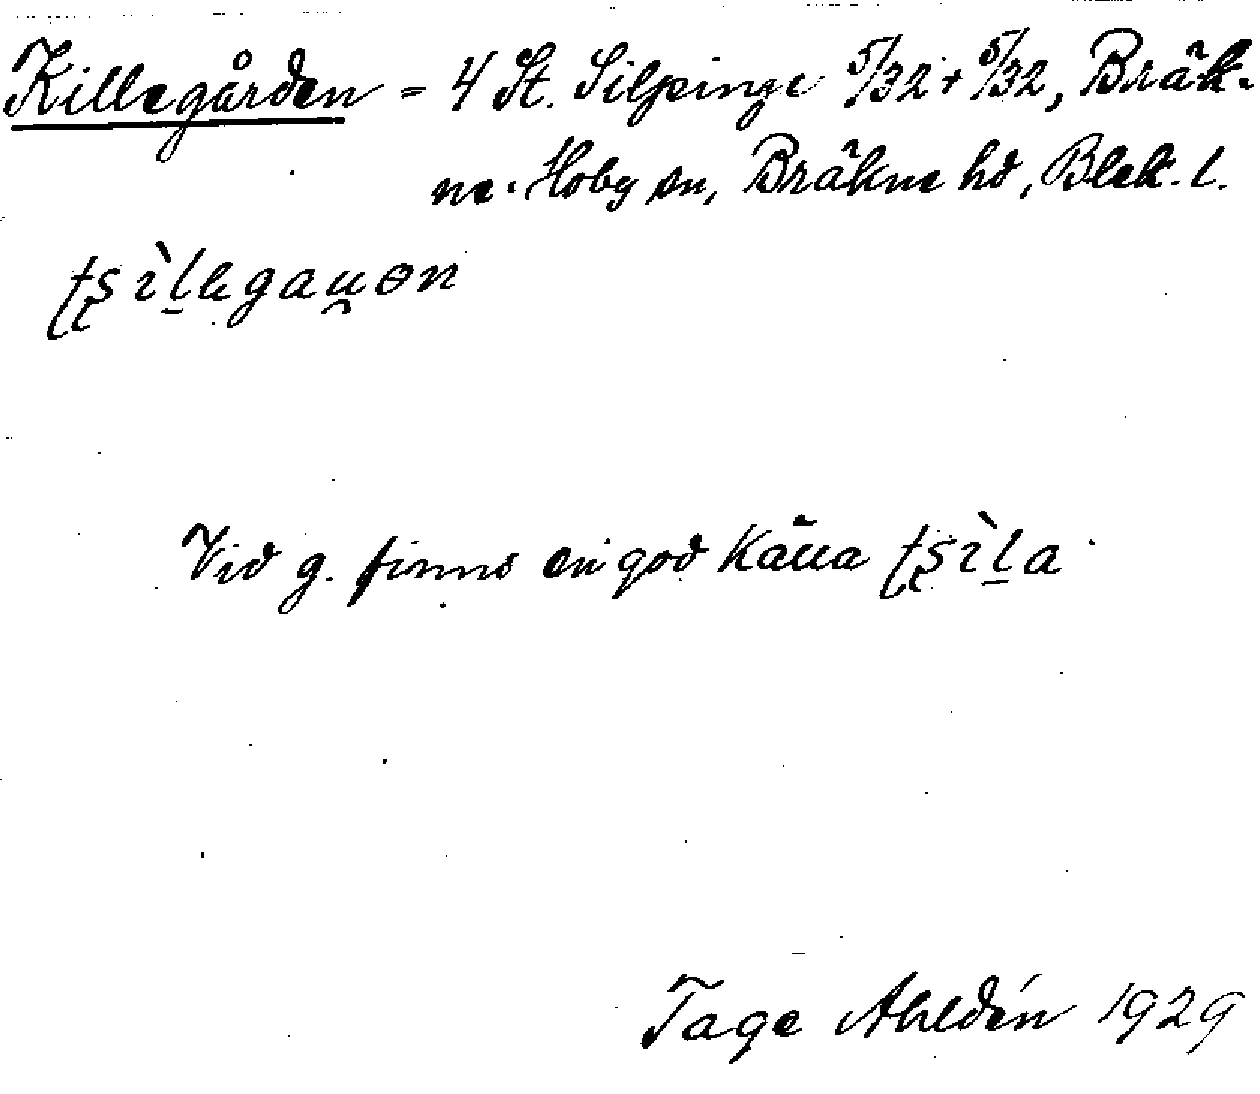 Killegården = 4 St. Silpinge 5/32 + 5/32, Bräk-
ne-Hoby sn, Bräkne hd, Blek. l.
Vid g. finns en god källa
Tage Ahldén 1929